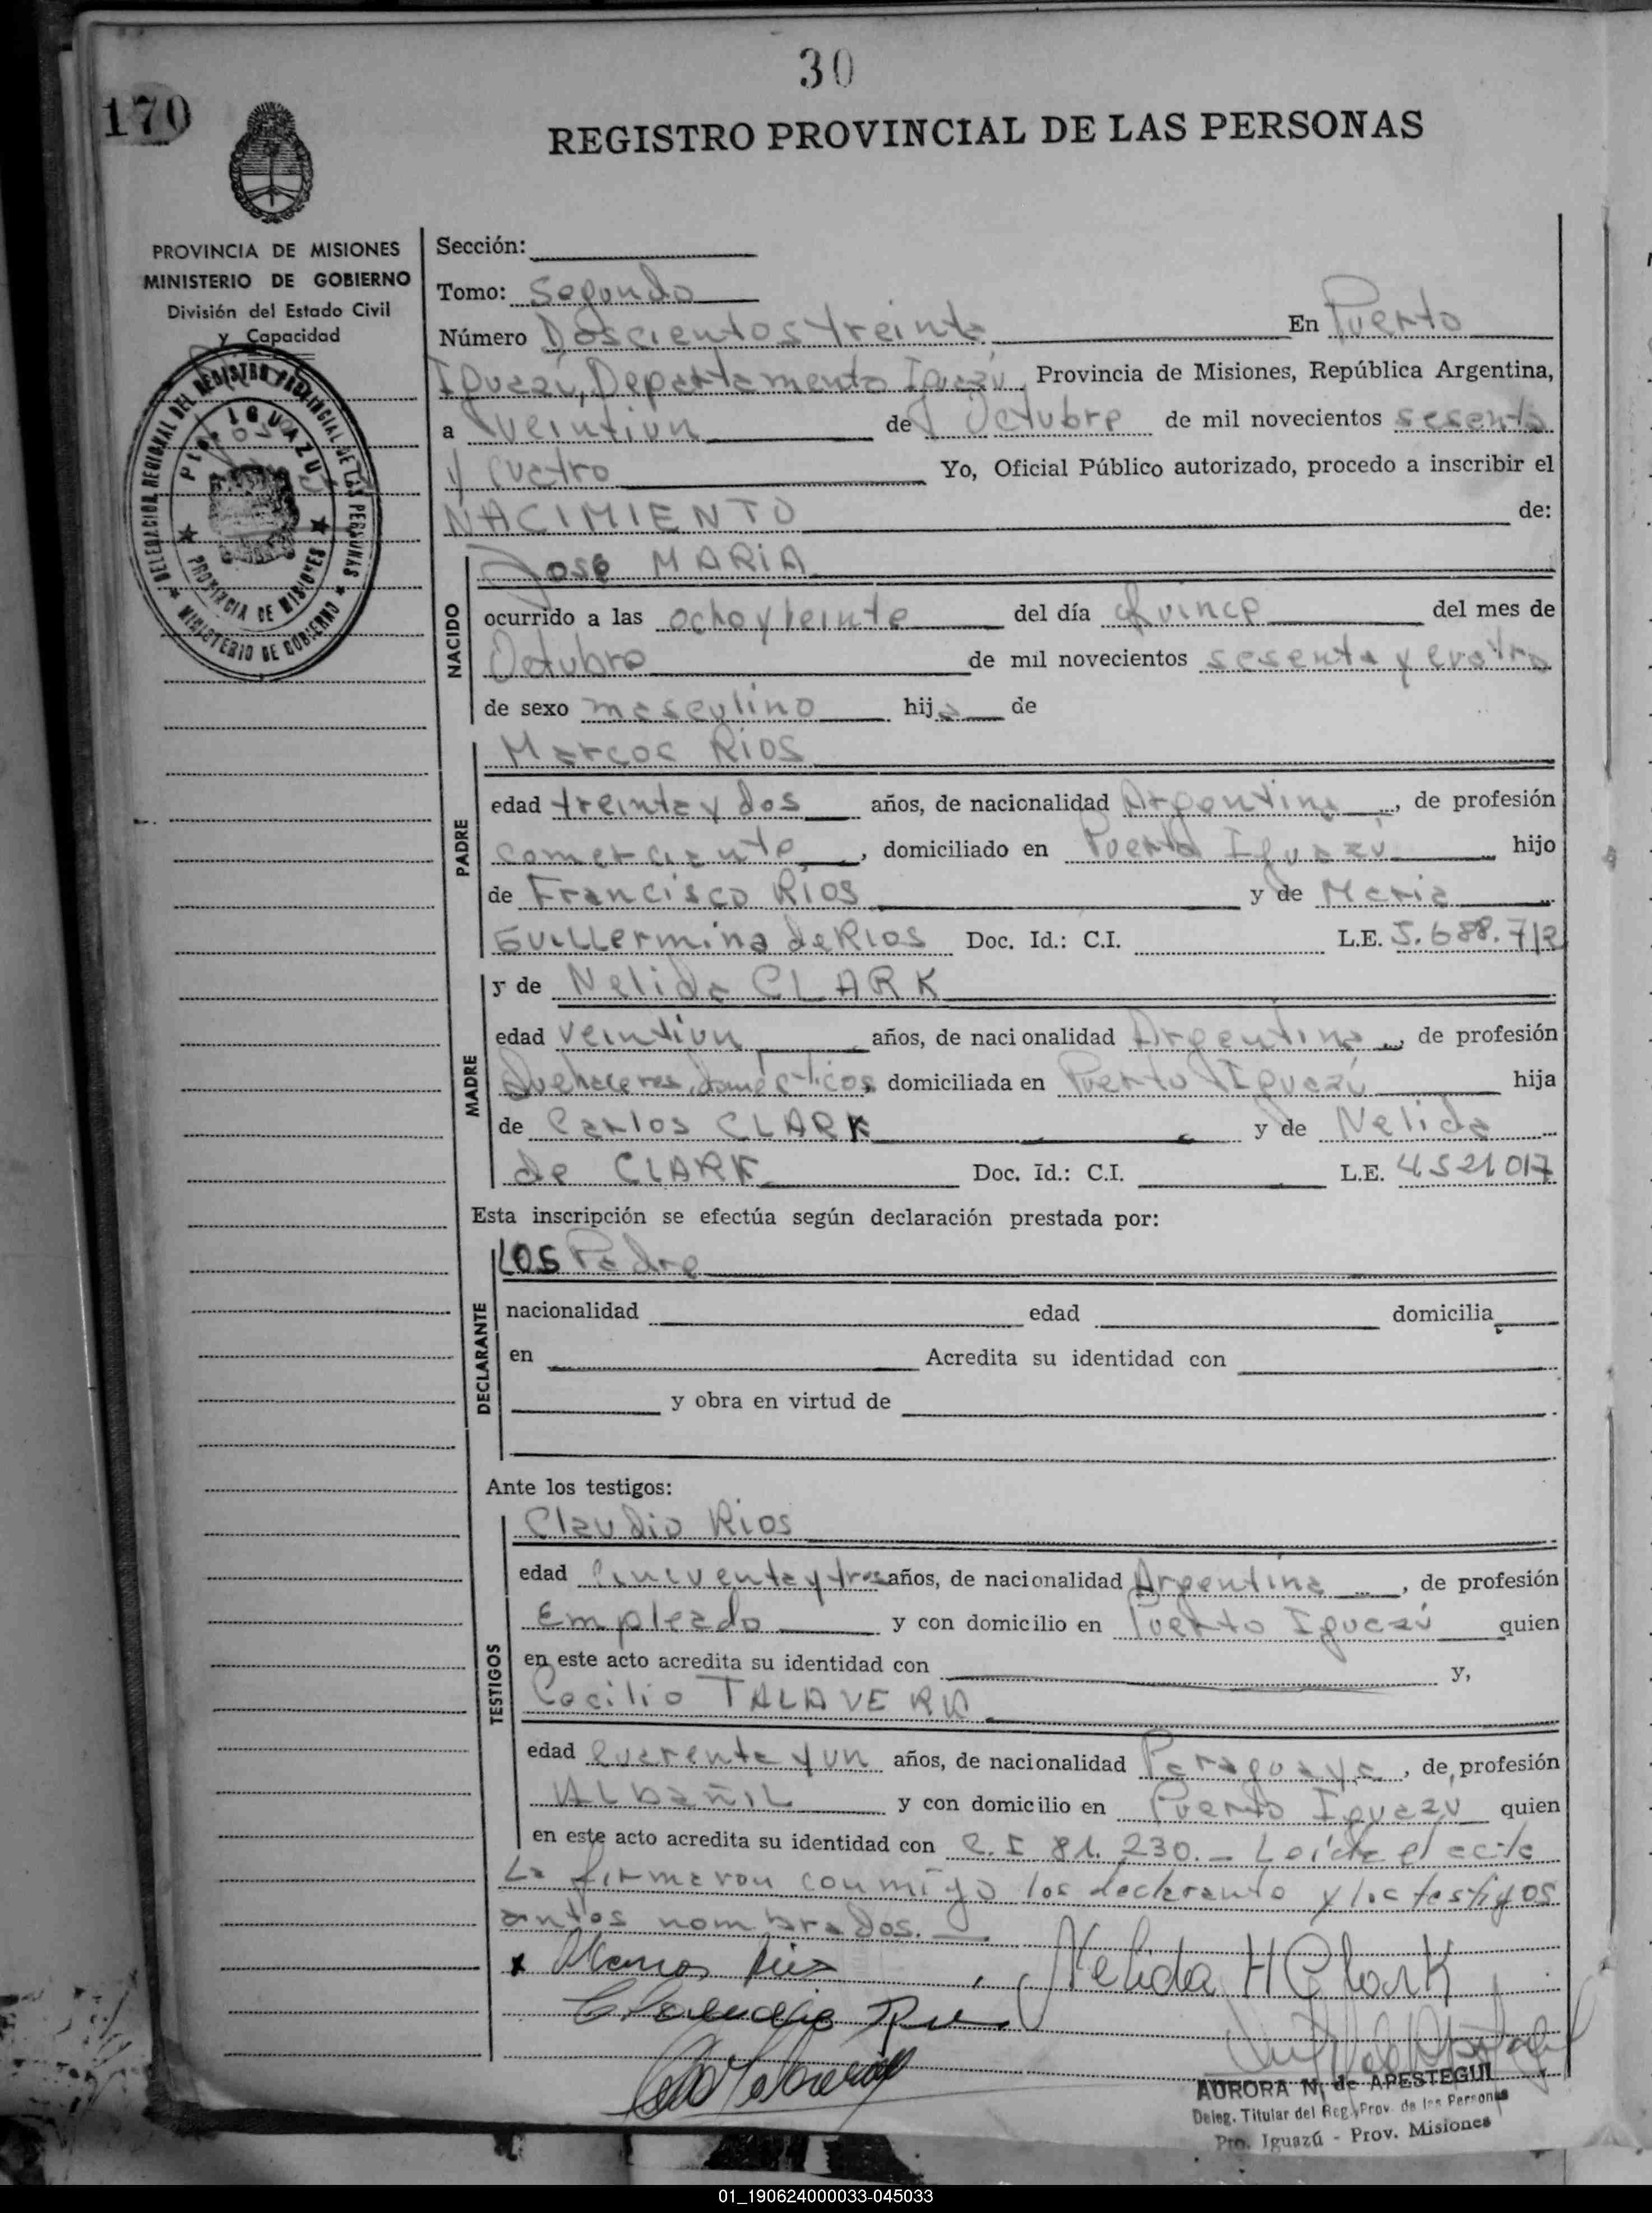 30
170
REGISTRO PROVINCIAL DE LAS PERSONAS
PROVINCIA DE MISIONES
MINISTERIO DE GOBIERNO
División del Estado Civil
y Capacidad
DELEGACION REGIONAL DEL REGISTRO PROVINCIAL DE LAS PERSONAS
PTO. IGUAZU
PROVINCIA DE MISIONES
MINISTERIO DE GOBIERNO
Sección:
Tomo: Segundo
Número Doscientos treinta En Puerto
Iguazú, Departamento Iguazú Provincia de Misiones, República Argentina,
a veintiun de Octubre de mil novecientos sesenta
y cuatro Yo, Oficial Público autorizado, procedo a inscribir el
NACIMIENTO de:
NACIDO
Jose MARIA
ocurrido a las ocho y veinte del día Quince del mes de
Octubre de mil novecientos sesenta y cuatro
de sexo masculino hijo de
PADRE
Marcos RIOS
edad treinta y dos años, de nacionalidad Argentina, de profesión
comerciante, domiciliado en Puerto Iguazú hijo
de Francisco RIOS y de Maria
GUILLermina de RIOS Doc. Id.: C.I. L.E. 5.688.712
MADRE
y de Nelida CLARK
edad veintiun años, de nacionalidad Argentina, de profesión
Quehaceres domésticos, domiciliada en Puerto Iguazú hija
de Carlos CLARK y de Nelida
de CLARK Doc. Id.: C.I. L.E. 4521017
Esta inscripción se efectúa según declaración prestada por:
DECLARANTE
LOS Padre
nacionalidad edad domicilia
en Acredita su identidad con
y obra en virtud de
Ante los testigos:
TESTIGOS
Claudio RIOS
edad Cincuenta y tres años, de nacionalidad Argentina, de profesión
Empleado y con domicilio en Puerto Iguazú quien
en este acto acredita su identidad con y,
Cecilio TALAVERA
edad Cuarenta y un años, de nacionalidad Paraguaya, de profesión
ALbañiL y con domicilio en Puerto Iguazú quien
en este acto acredita su identidad con C.I 81.230.- Leída el acta
La firmaron conmigo los declarante y los testigos
antes nombrados.
Marcos Rios Nelida H Clark
Claudio
AURORA N. de APESTEGUI
Deleg. Titular del Reg. Prov. de las Personas
Pto. Iguazú - Prov. Misiones
01_190624000033-045033